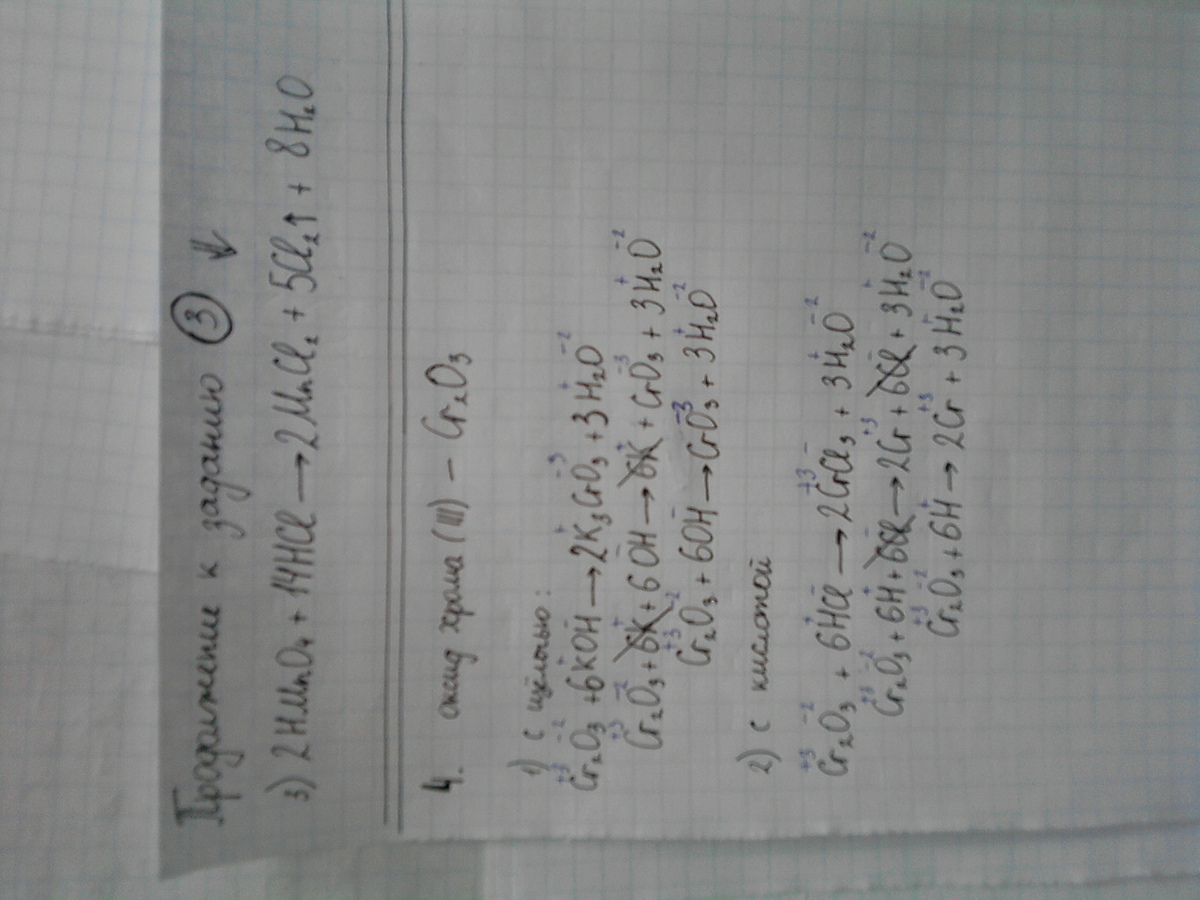 Продолжение к заданию ③ ↓
3) 2HMnO₄ + 14HCl → 2MnCl₂ + 5Cl₂↑ + 8H₂O
4. оксид хрома (III) – Cr₂O₃
1) с щёлочью:
Cr₂⁺³O₃⁻² + 6K⁺OH⁻ → 2K₃⁺CrO₃⁻³ + 3H₂⁺O⁻²
Cr₂⁺³O₃⁻² + 6K⁺ + 6OH⁻ → 6K⁺ + CrO₃⁻³ + 3H₂⁺O⁻²
Cr₂⁺³O₃⁻² + 6OH⁻ → CrO₃⁻³ + 3H₂⁺O⁻²
2) с кислотой
Cr₂⁺³O₃⁻² + 6H⁺Cl⁻ → 2Cr⁺³Cl₃⁻ + 3H₂⁺O⁻²
Cr₂⁺³O₃⁻² + 6H⁺ + 6Cl⁻ → 2Cr⁺³ + 6Cl⁻ + 3H₂⁺O⁻²
Cr₂⁺³O₃⁻² + 6H⁺ → 2Cr⁺³ + 3H₂⁺O⁻²